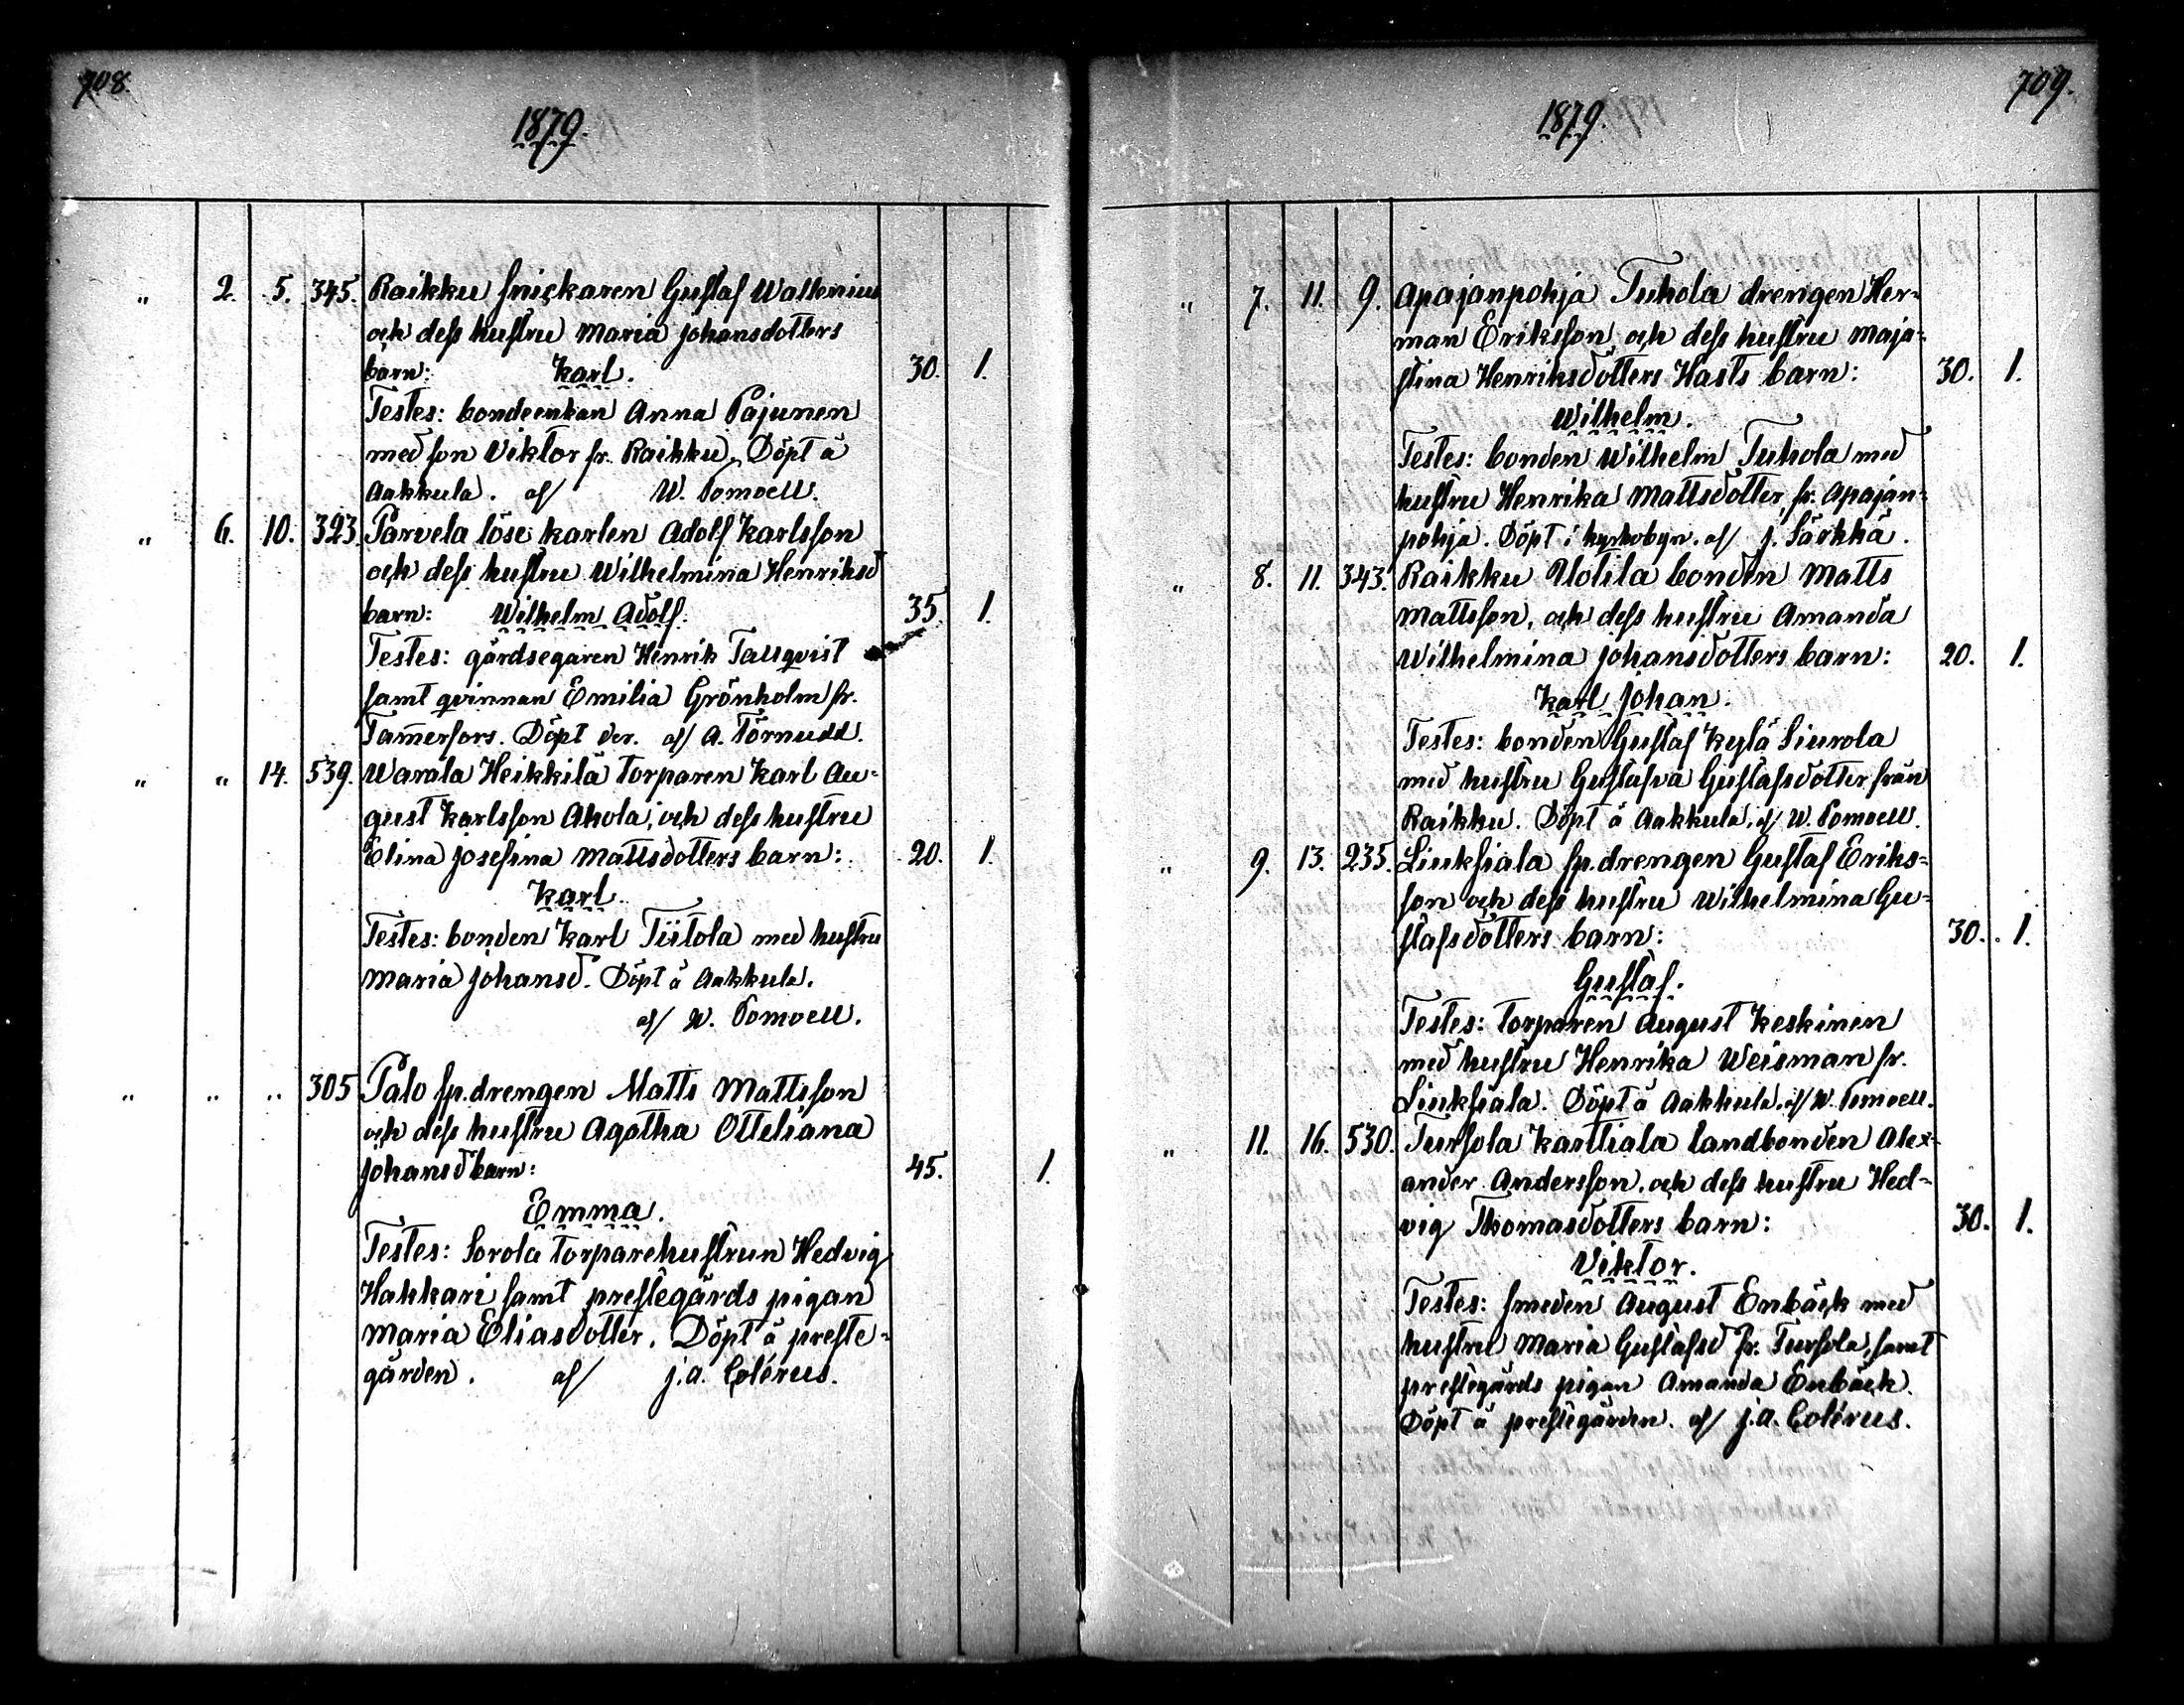 708.
1879.
" 2. 5. 345. Raikku snickaren Gustaf Wallenius
och dess hustru Maria Johansdotters
barn: Karl. 30. 1.
Testes: bondeenkan Anna Pajunen
med son Viktor fr. Raikku. Döpt å
Aakkula. af/ W. Pomoell.
" 6. 10. 323. Parvela löse karlen Adolf Karlsson
och dess hustru Wilhelmina Henriksd
barn: Wilhelm Adolf. 35. 1.
Testes: gårdsegaren Henrik Tallqvist
samt qvinnan Emilia Grönholm fr.
Tam̄erfors. Döpt der. af/ A. Törnudd.
" " 14. 539. Warala Heikkilä torparen Karl Au-
gust Karlsson Ahola, och dess hustru
Elina Josefina Mattsdotters barn: 20. 1.
Karl.
Testes: bonden Karl Tiitola med hustru
Maria Johansd. Döpt å Aakkula.
af/ W. Pomoell.
" " " 305 Palo sp.drengen Matts Mattsson
och dess hustru Agatha Otteliana
Johansd barn: 45. 1.
Emma.
Testes: Sorola torparehustrun Hedvig
Hakkari samt prestegårds pigan
Maria Eliasdotter. Döpt å preste-
gården. af/ J.A. Colérus.
709.
1879.
" 7. 11. 9. Apajanpohja Tuhola drengen Her-
man Eriksson, och dess hustru Maja-
stina Henriksdotters Hasts barn: 30. 1.
Wilhelm.
Testes: bonden Wilhelm Tuhola med
hustru Henrika Mattsdotter, fr. Apajan-
pohja. Döpt i kyrkobyn. af/ J. Särkkä.
" 8. 11. 343. Raikku Uotila bonden Matts
Mattsson, och dess hustru Amanda
Wilhelmina Johansdotters barn: 20. 1.
Karl Johan.
Testes: bonden Gustaf Kylä Siurola
med hustru Gustafva Gustafsdotter från
Raikku. Döpt å Aakkula, af/ W. Pomoell.
" 9. 13. 235. Liuksiala sp.drengen Gustaf Eriks-
son och dess hustru Wilhelmina Gu-
stafsdotters barn: 30. 1.
Gustaf.
Testes: torparen August Keskinen
med hustru Henrika Weisman fr.
Liuksiala. Döpt å Aakkula. af/ W. Pomoell.
" 11. 16. 530. Tursola Karttiala landbonden Alex-
ander Andersson, och dess hustru Hed-
vig Thomasdotters barn: 30. 1.
Viktor.
Testes: smeden August Enbäck med
hustru Maria Gustafsd fr. Tursola, samt
prestegårds pigan Amanda Enbäck.
Döpt å prestegården. af/ J.A. Colérus.